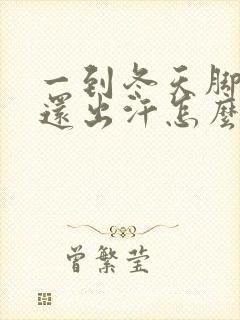 一到冬天脚
還出汗怎麼
曾繁莹